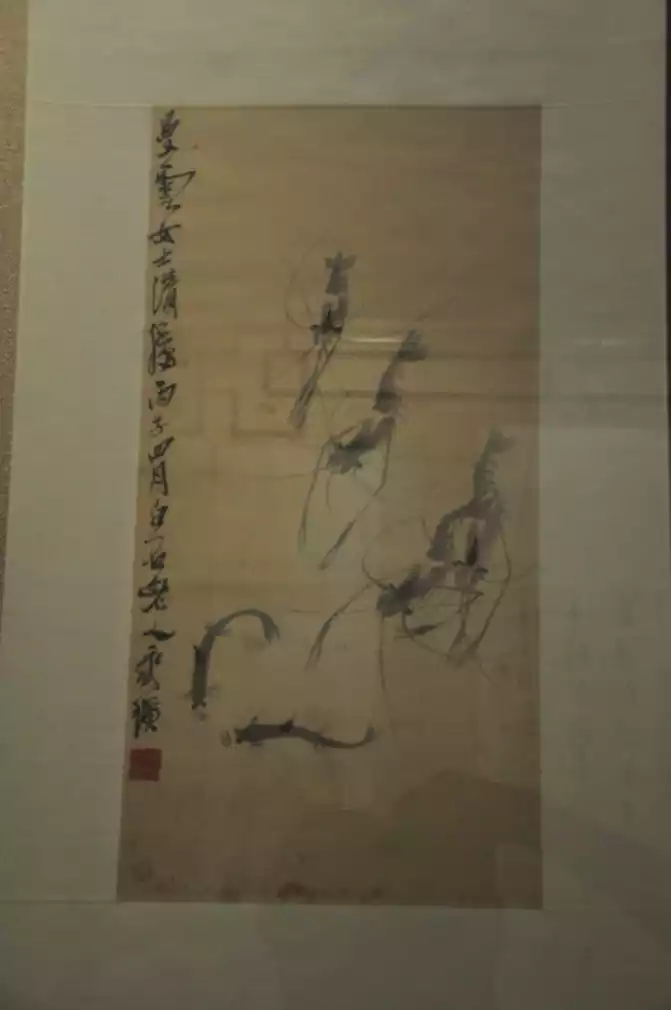 曼雲女士清屬丙子四月白石老人齊璜